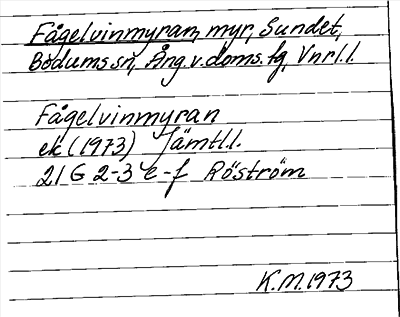 Fågelvinmyran, myr, Sundet,
Bodums sn, Ång.v.doms.fg, Vnrl.l.
Fågelvinmyran
ek (1973) Jämtl.l.
21 G 2-3 e-f Röström
K.M. 1973